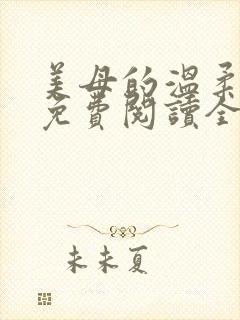 美母的温柔
免費閱讀全
未未夏